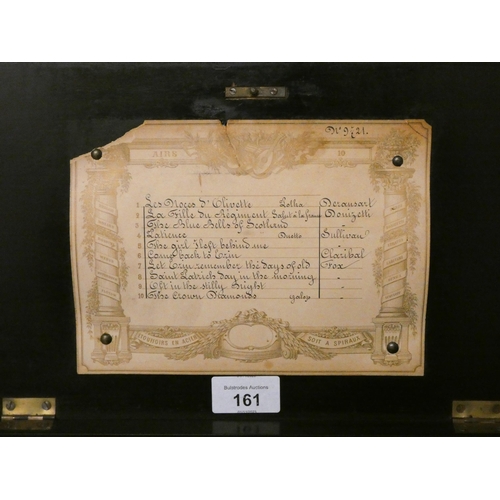 Nº 9721.
AIRS 10
1 Les Noces d'Olivette Polka Deransart
2 La Fille du Régiment Salut à la france Donizetti
3 The Blue Bells of Scotland "
4 Patience Duetto Sullivan
5 The girl I left behind me "
6 Come back to Erin Claribal
7 Let Erin remember the days of old Fox
8 Saint Patrich day in the morning "
9 Oft in the stilly Night "
10 The Crown Diamonds galop "
RÉPERTOIRE EN ACIER SOIT A SPIRAUX
Bulstrodes Auctions
161